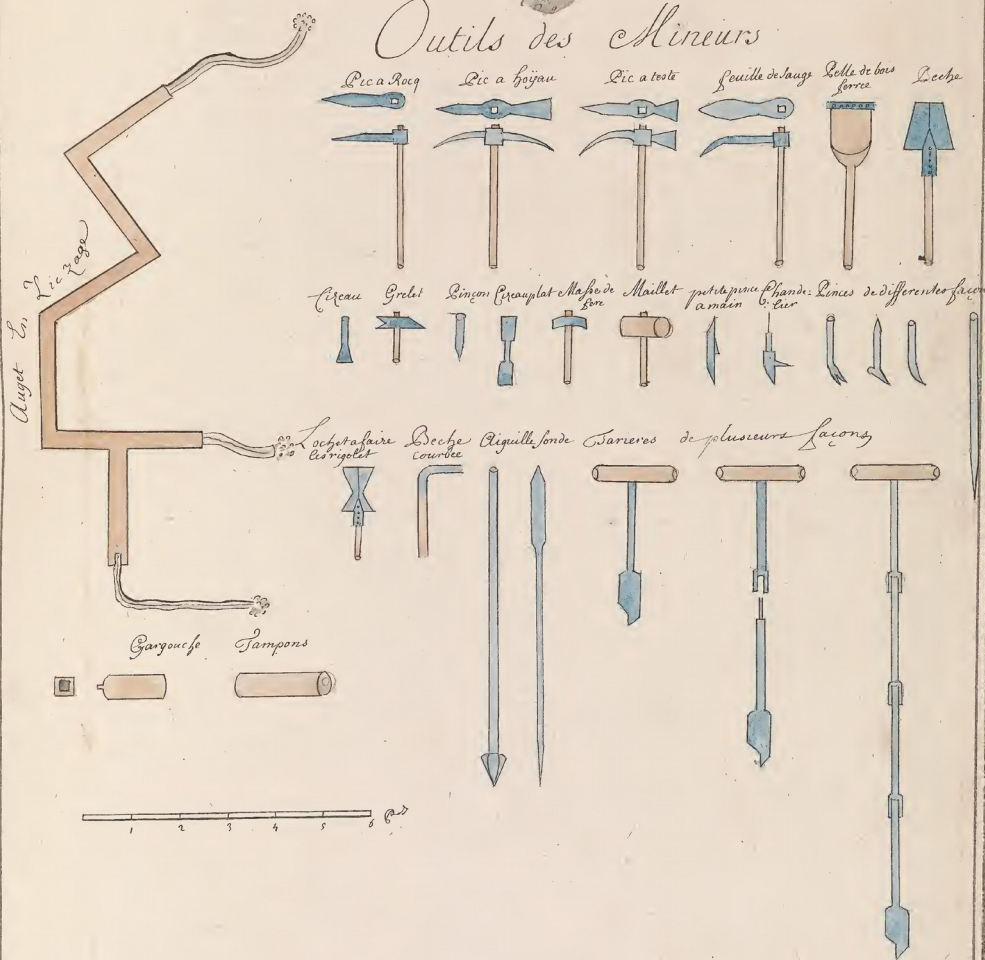 Outils des Mineurs
Pic a Rocq
Pic a hoÿau
Pic a teste
feuille de sauge
Pelle de bois
ferrée
Beche
Cizeau
Grelet
Pinçon
Cizeau plat
Masse de
fere
Maillet
petite pince
a main
Chande-
lier
Pinces de differentes façon
Auget En Zic Zage
Lochet a faire
les rigolet
Beche
courbee
Aiguille
sonde
Tarieres de plusieurs façons
Gargouche
Tampons
1 2 3 4 5 6